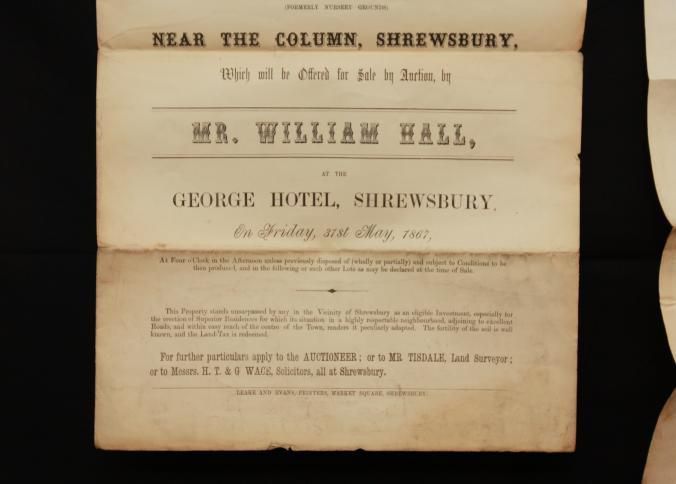 (FORMERLY NURSERY GROUNDS)
NEAR THE COLUMN, SHREWSBURY,
Which will be Offered for Sale by Auction, by
MR. WILLIAM HALL,
AT THE
GEORGE HOTEL, SHREWSBURY,
On Friday, 31st May, 1867,
At Four o'Clock in the Afternoon unless previously disposed of (wholly or partially) and subject to Conditions to be
then produced, and in the following or such other Lots as may be declared at the time of Sale.
This Property stands unsurpassed by any in the Vicinity of Shrewsbury as an eligible Investment, especially for
the erection of Superior Residences for which its situation in a highly respectable neighbourhood, adjoining to excellent
Roads, and within easy reach of the centre of the Town, renders it peculiarly adapted. The fertility of the soil is well
known, and the Land-Tax is redeemed.
For further particulars apply to the AUCTIONEER; or to MR. TISDALE, Land Surveyor;
or to Messrs. H. T. & G WACE, Solicitors, all at Shrewsbury.
LEAKE AND EVANS, PRINTERS, MARKET SQUARE, SHREWSBURY.